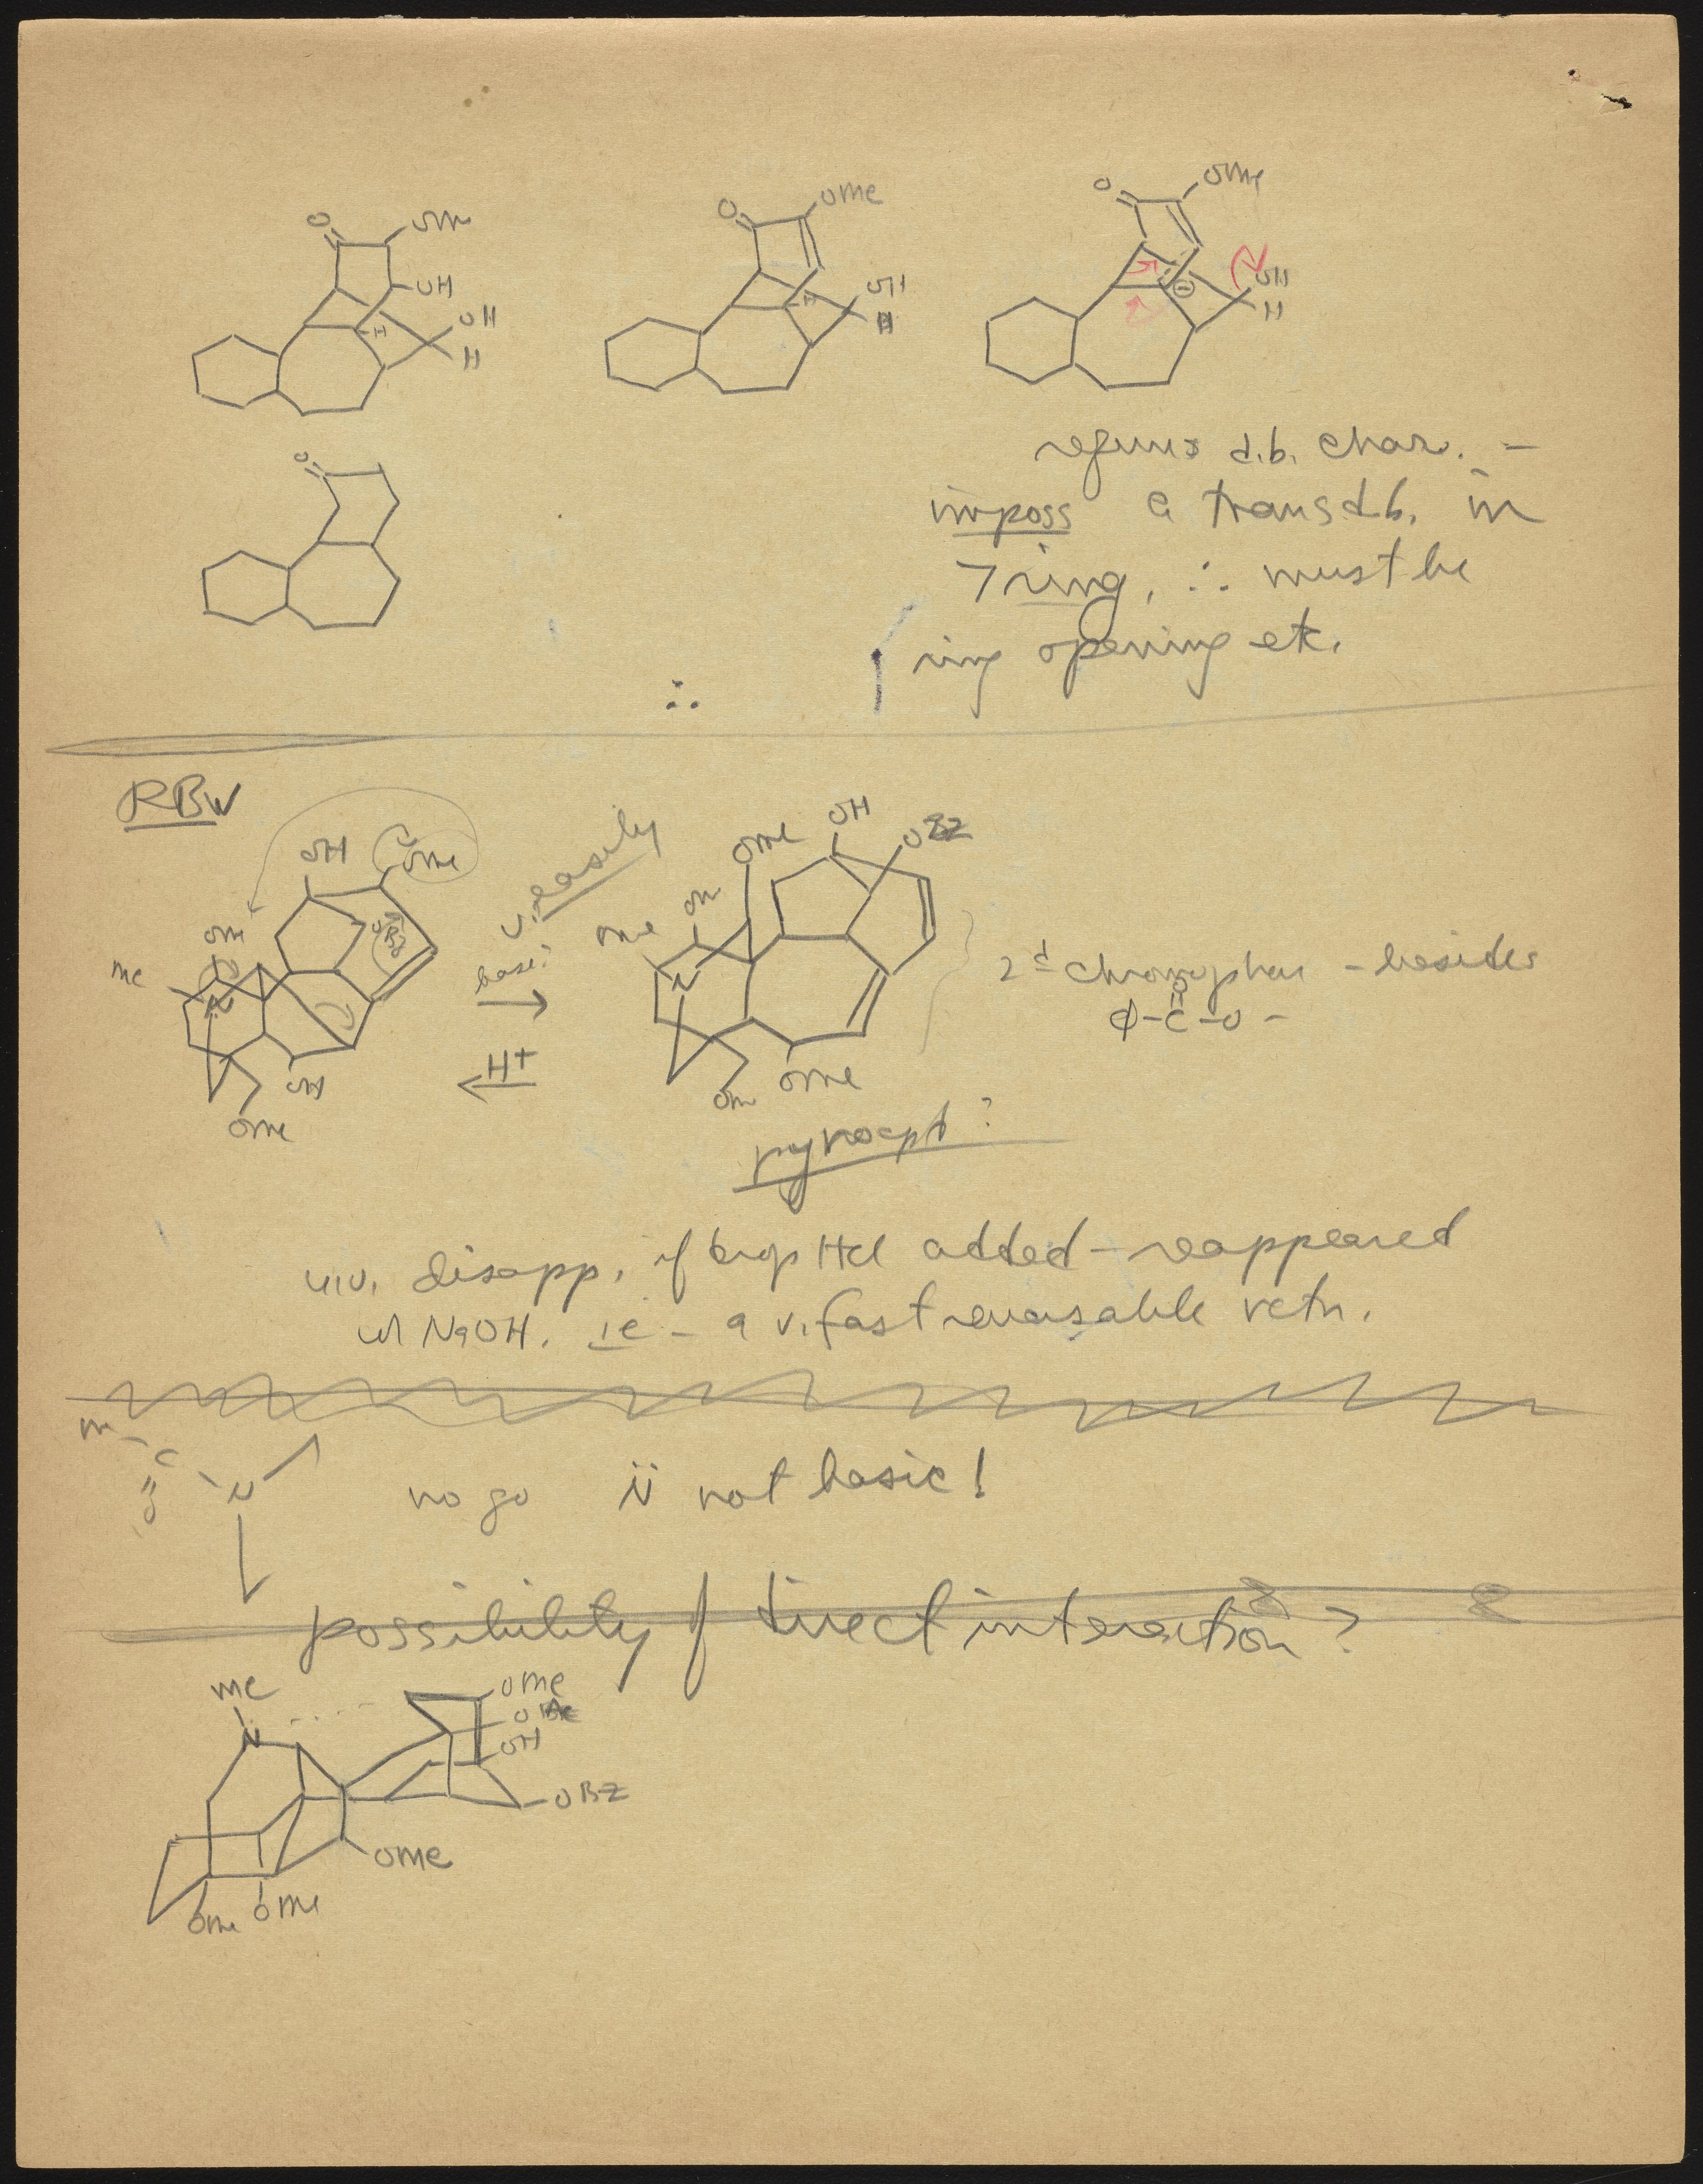 O OM
OH
H
OH
H
O OMe
H
OH
H
O OMe
⊖
OH
H
O
requires d.b. char. –
imposs c̄ trans d.b. in
7 ring, ∴ must be
ring opening etc.
∴
RBW
OH OMe
OM
Me
N
OH
OMe
v. easily
base?
→
← H+
OMe OH OBz
OM
OMe
N
OM OMe
2d chromophore – besides
O
φ–C–O–
pyrocpt?
u.v. disapp. if drop HCl added – reappeared
w NaOH. ie – a v. fast reversable rctn.
M C
O
N
no go N̈ not basic!
possibility of direct interaction?
Me
N
OMe
OH
OBZ
OMe
OMe OMe